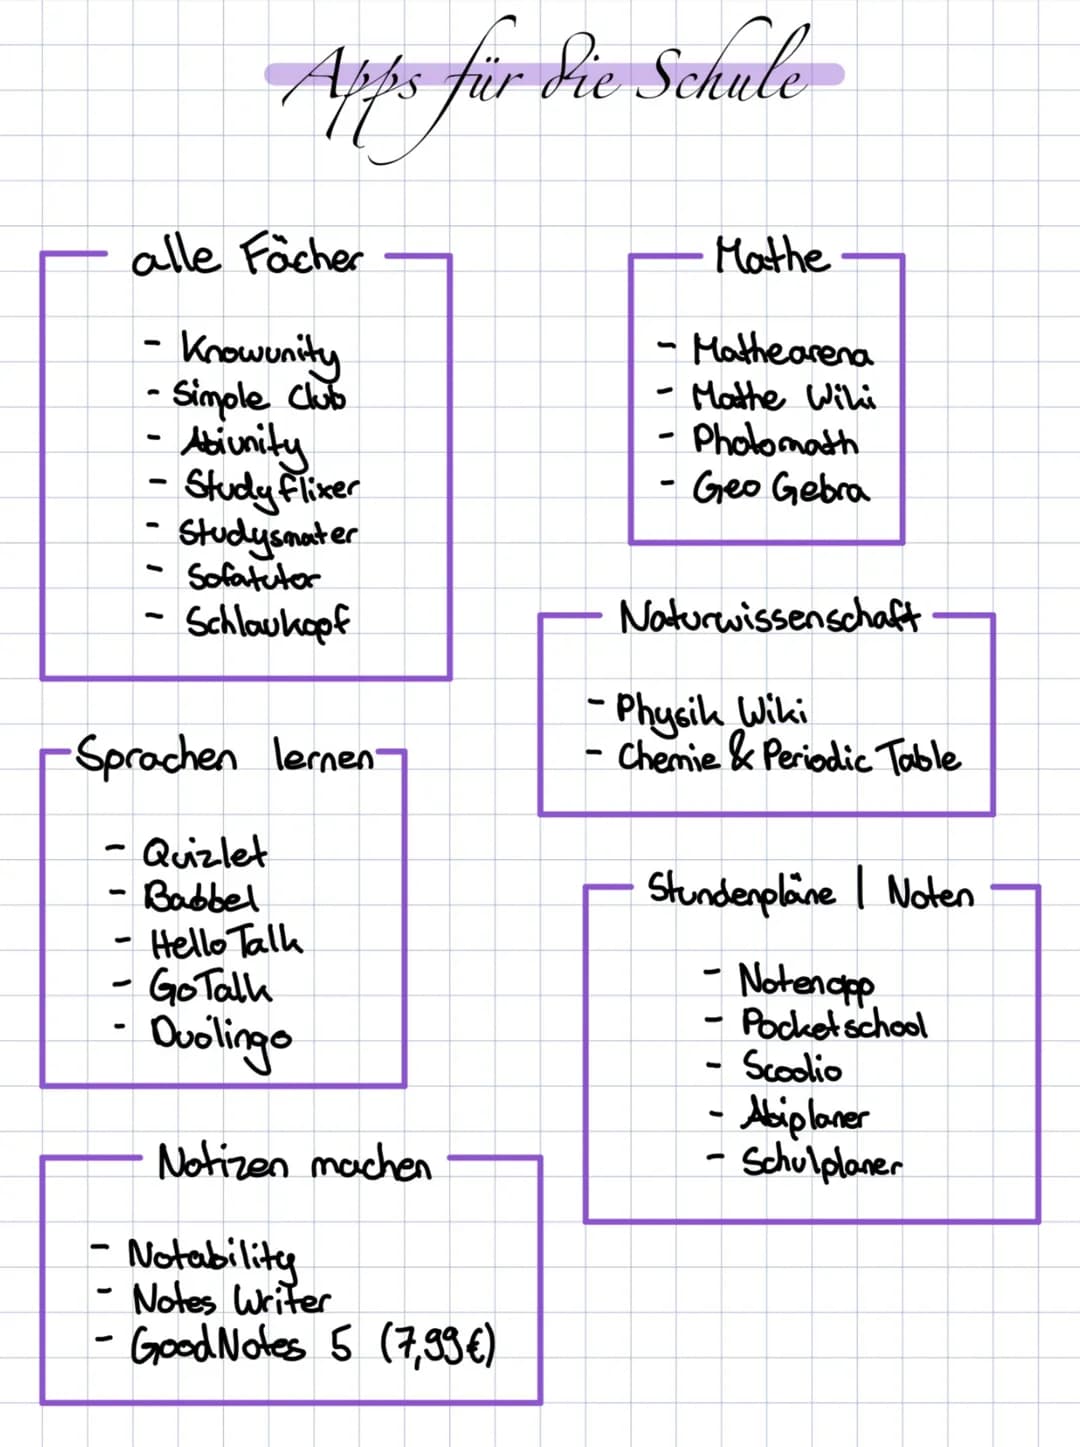 Apps für die Schule
alle Fächer
- Knowunity
- Simple Club
- Abiunity
- Studyflixer
- Studysmater
- Sofatutor
- Schlaukopf
Mathe
- Mathearena
- Mathe Wiki
- Photomath
- Geo Gebra
Naturwissenschaft
- Physik Wiki
- Chemie & Periodic Table
Sprachen lernen
- Quizlet
- Babbel
- HelloTalk
- GoTalk
- Duolingo
Stundenpläne | Noten
- Notenapp
- Pocketschool
- Scoolio
- Abiplaner
- Schulplaner
Notizen machen
- Notability
- Notes Writer
- GoodNotes 5 (7,99€)